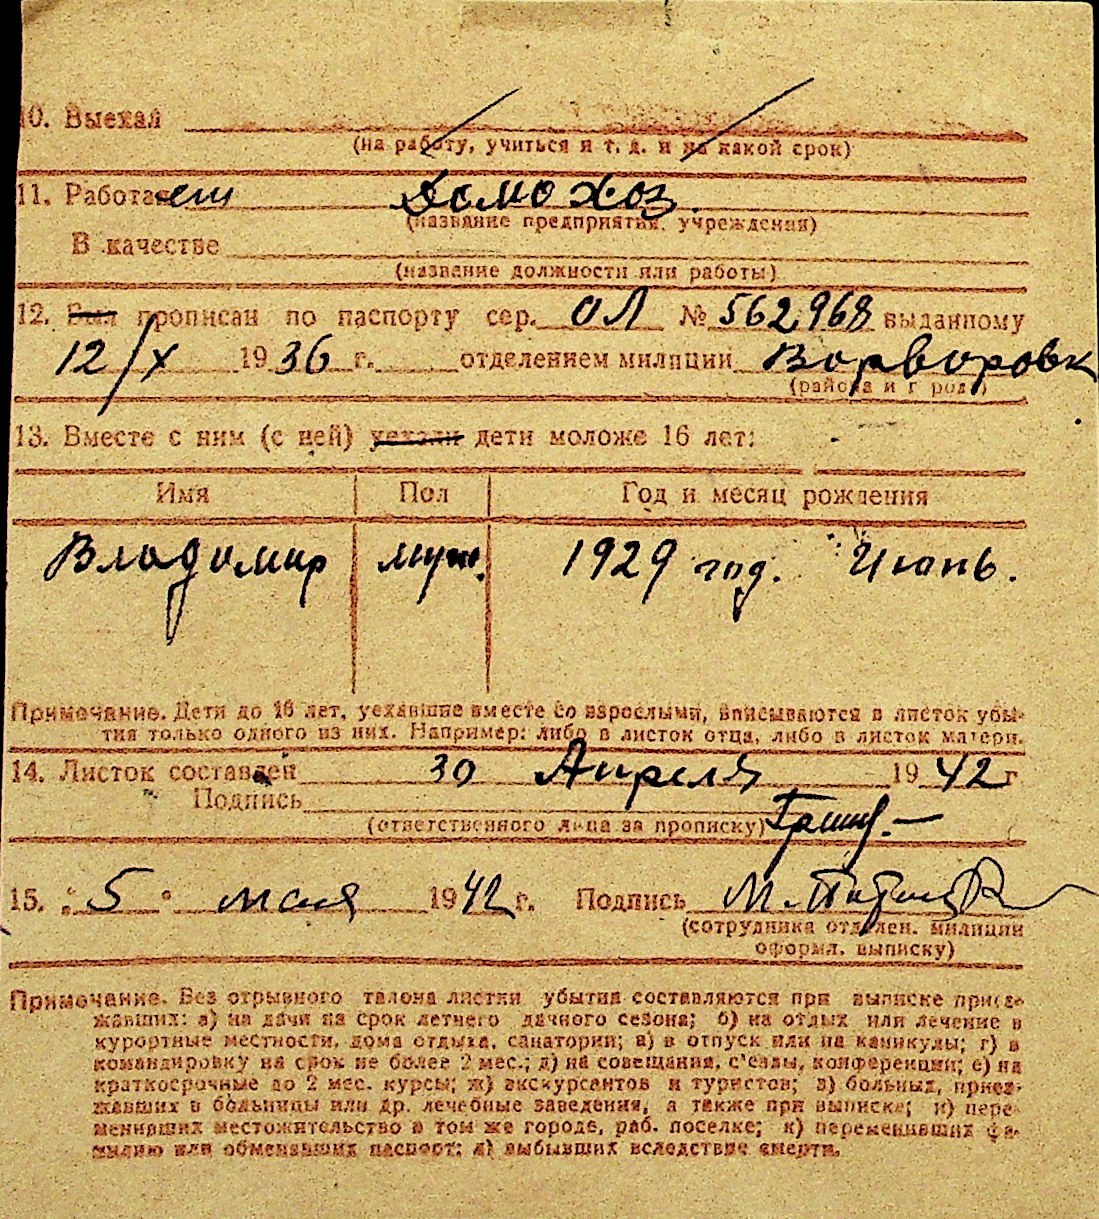 10. Выехал
(на работу, учиться и т. д. и на какой срок)
11. Работает Домохоз.
(название предприятия, учреждения)
В качестве
(название должности или работы)
12. Был прописан по паспорту сер. ОЛ № 562968 выданному
12/X 1936 г. отделением милиции Ворворовск
(района и города)
13. Вместе с ним (с ней) уехали дети моложе 16 лет:
Имя Пол Год и месяц рождения
Владимир муж. 1929 год. Июнь.
Примечание. Дети до 16 лет, уехавшие вместе со взрослыми, вписываются в листок убы-
тия только одного из них. Например: либо в листок отца, либо в листок матери.
14. Листок составлен 30 Апреля 1942 г
Подпись
(ответственного лица за прописку)
15. "5" мая 1942 г. Подпись М.
(сотрудника отделен. милиции
оформл. выписку)
Примечание. Без отрывного талона листки убытия составляются при выписке приез-
жавших: а) на дачи на срок летнего дачного сезона; б) на отдых или лечение в
курортные местности, дома отдыха, санатории; в) в отпуск или на каникулы; г) в
командировку на срок не более 2 мес.; д) на совещания, с'езды, конференции; е) на
краткосрочные до 2 мес. курсы; ж) экскурсантов и туристов; з) больных, приез-
жавших в больницы или др. лечебные заведения, а также при выписке; и) пере-
менивших местожительство в том же городе, раб. поселке; к) переменивших фа-
милию или обменявших паспорт; л) выбывших вследствие смерти.